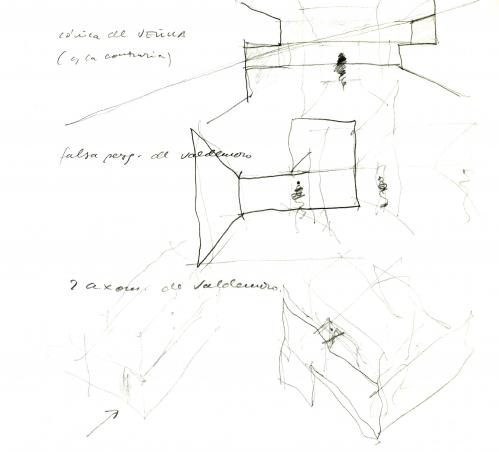 cónica de VEÑUA
(y la contraria)
falsa persp. de valdemoro
2 axom. de valdemoro.